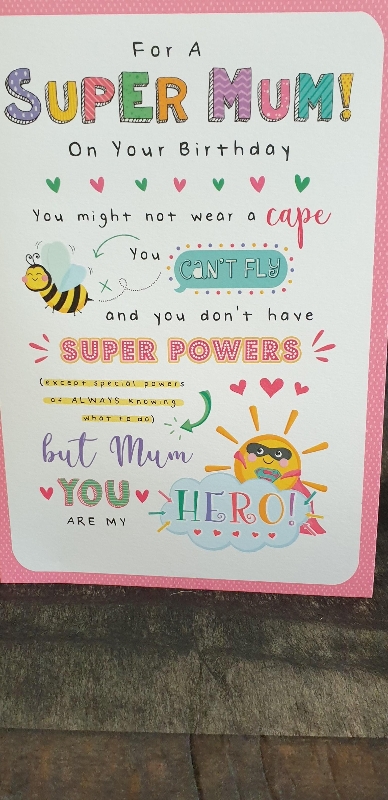 For A
SUPER MUM!
On Your Birthday
You might not wear a cape
You CAN'T FLY
and you don't have
SUPER POWERS
(except special powers
of ALWAYS knowing
what to do)
but Mum
YOU
ARE MY HERO!